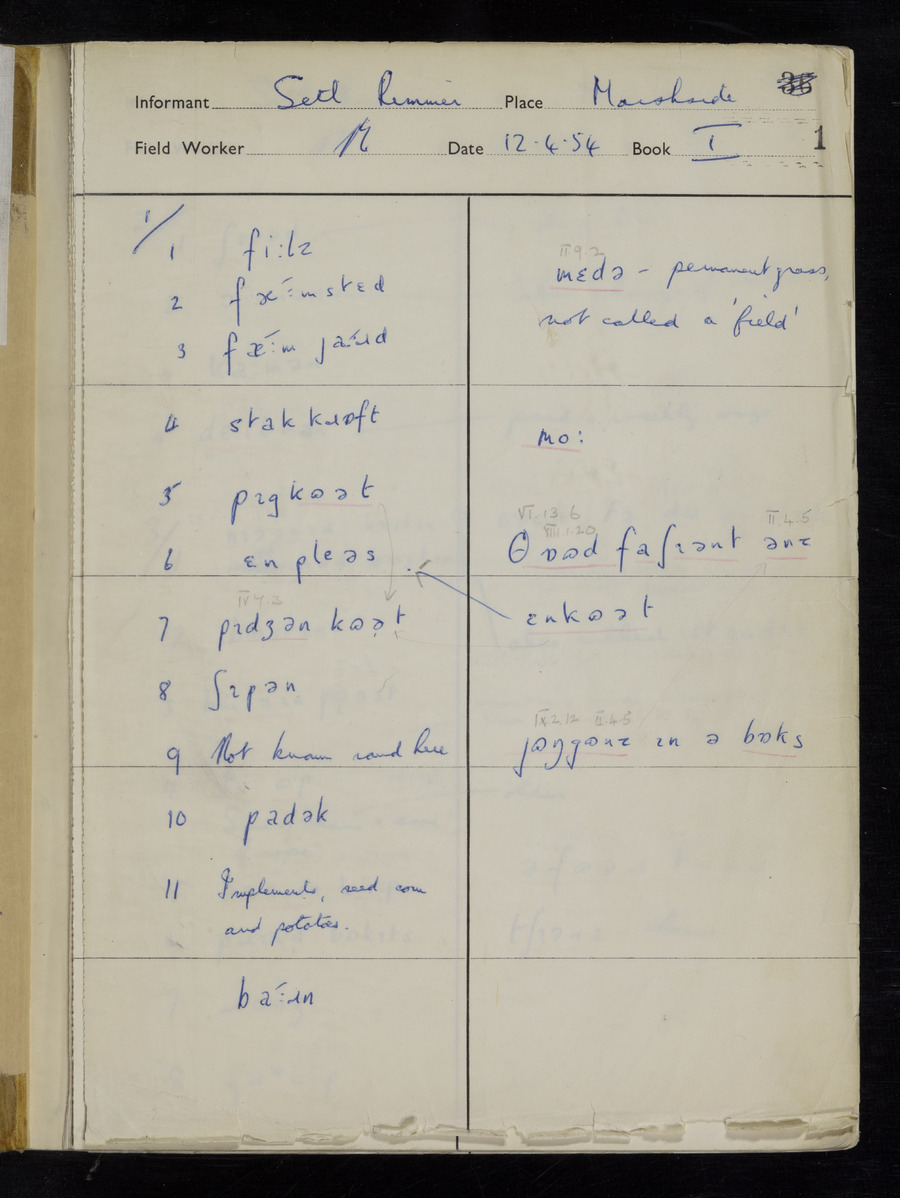 Informant Setl Rimmer Place Marshside 36
Field Worker Date 12.4.54 Book I 1
1/
1 fi:lz
2 fæ´:mstɛd
3 fæ´:m ja´:ɹd
4 stak kɹɒft
5 pɪgkɷət
6 ɛn pleəs
IV 7.3
7 pɪdʒən kɷət
8 ʃɪpən
9 Not known round here
10 padək
11 Implements, seed corn
and potatoes.
ba´:ɹn
II.9.2
mɛdə – permanent grass,
not called a 'field'
mo:
VI.13.6
VIII.1.20 II.4.5
ənɪ
ɛnkɷət
IX.2.12 II.4.5
ɪn ə bɒks